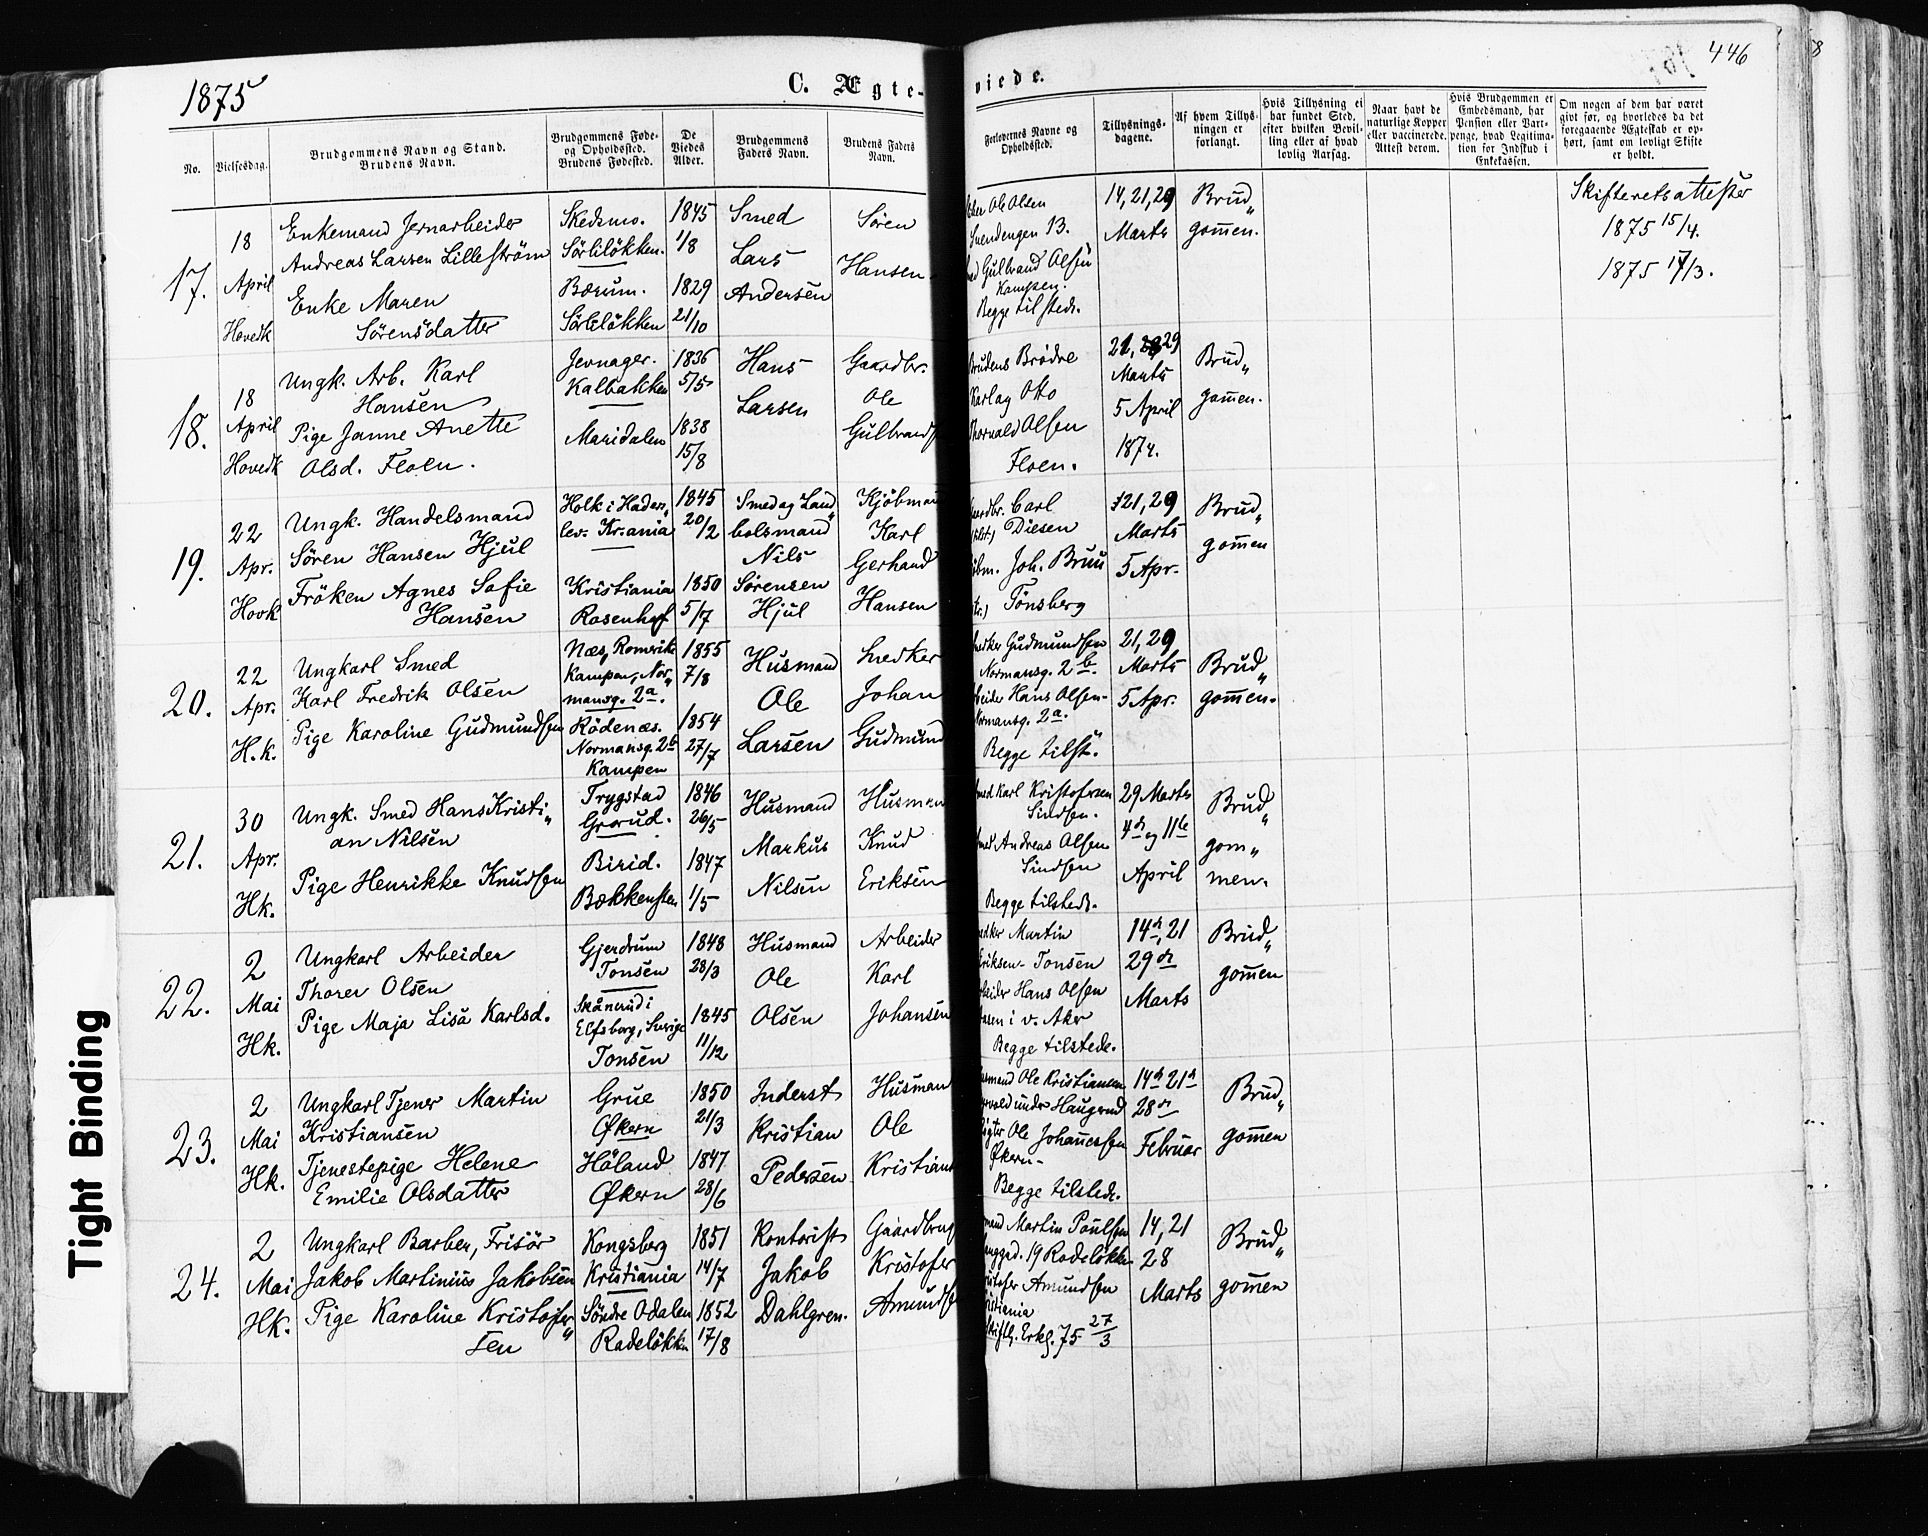 1875
C. Ægte-
viede.
446
No.
Vielsesdag.
Brudgommens Navn og Stand.
Brudens Navn.
Brudgommens Føde-
og Opholdssted.
Brudens Fødested.
De
Viedes
Alder.
Brudgommens
Faders Navn.
Brudens Faders
Navn.
Forlovernes Navne og
Opholdssted.
Tillysnings-
dagene.
Af hvem Tillys-
ningen er
forlangt.
Hvis Tillysning ei
har fundet Sted,
efter hvilken Bevil-
ling eller af hvad
lovlig Aarsag.
Naar havt de
naturlige Kopper
eller vaccinerede.
Attest derom.
Hvis Brudgommen er
Embedsmand, har
Pension eller Vart-
penge, hvad Legitima-
tion for Indskud i
Enkekassen.
Om nogen af dem har været
givt før, og hvorledes da det
foregaaende Ægteskab er op-
hørt, samt om lovligt Skifte
er holdt.
17.
18
April
Hovedk
Enkemand Jernarbeider
Andreas Larsen Lillestrøm
Enke Maren
Sörensdatter
Skedsmo.
Sörliløkken.
Bærum.
Sörliløkken
1845
1/8
1829
21/10
Smed
Lars
Andersen
Sören
Hansen
Ole Olsen
Svendengen 13.
Gulbrand Olsen
Kampen.
Begge tilstede.
14, 21, 29
Marts
Brud„
gommen.
Skifteretsattester
1875 15/4.
1875 17/3.
18.
18
April
Hovedk
Ungk. Arb. Karl
Hansen
Pige Janne Anette
Olsd. Floen.
Jevnager.
Kalbakken
Maridalen
1836
5/5
1838
15/8
Hans
Larsen
Gaardbr.
Ole
Gulbrands
Brudens Brødre
Karl og Otto
Thorvald Olsen
Floen.
21, 29
Marts
5 April
1874.
Brud„
gommen.
19.
22
Apr.
Hovk
Ungk. Handelsmand
Sören Hansen Hjul
Fröken Agnes Sofie
Hansen
Holk i Haders„
lev. Kr.ania
Kristiania
Rosenhof
1845
20/2
1850
5/7
Smed og Land„
bolsmand
Nils
Sørensen
Hjul
Kjöbman
Karl
Gerhard
Hansen
Carl
Diesen
Joh. Bruu
Tönsberg
21, 29
Marts
5 Apr.
Brud„
gommen
20.
22
Apr.
H.k.
Ungkarl Smed
Karl Fredrik Olsen
Pige Karoline Gudmundsen
Næs, Romerike
Kampen, Nor„
mansg. 2a.
Rödenæs.
Normansg. 2b
Kampen
1855
7/8
1854
27/7
Husmand
Ole
Larsen
Snedker
Johan
Gudmund
Gudmundsen
Normansg. 2b.
Hans Olsen
Normansg. 2a.
Begge tilst.
21, 29
Marts
5 Apr.
Brud„
gommen.
21.
30
Apr.
Hk.
Ungk. Smed Hans Kristi„
an Nilsen
Pige Henrikke Knudsen
Trygstad
Grorud.
Birid.
Bækkensten
1846
26/5
1847
1/5
Husmand
Markus
Nilsen
Husman
Knud
Eriksen
Karl Kristofersen
Sinsen.
Andreas Olsen
Sindsen
Begge tilstede.
29 Marts
4de og 11te
April
Brud„
gom„
men.
22.
2
Mai
Hk.
Ungkarl Arbeider
Thorer Olsen
Pige Maja Lisa Karlsd.
Gjerdrum
Tonsen
Skånerud i
Elfsborg, Sverige
Tonsen
1848
28/3
1845
11/12
Husmand
Ole
Olsen
Arbeider
Karl
Johansen
Martin
Eriksen Tonsen
Hans Olsen
i v. Aker
Begge tilstede.
14de, 21
29de
Marts
Brud„
gommen
23.
2
Mai
Hk.
Ungkarl Tjener Martin
Kristiansen
Tjenestepige Helene
Emilie Olsdatter
Grue
Økern
Höland
Økern
1850
21/3
1847
28/6
Inderst
Kristian
Pedersen
Husman
Ole
Kristians
Ole Kristiansen
under Haugerud
Ole Johannessen
Økern
Begge tilstede.
14de 21de
28de
Februar
Brud„
gommen
24.
2
Mai
Hk.
Ungkarl Barber, Frisör
Jakob Martinius Jakobsen
Pige Karoline Kristofer„
sen
Kongsberg
Kristiania
Söndre Odalen
Rodeløkken
1851
14/7
1852
17/8
Kontorist
Jakob
Dahlgren.
Gaardbrug
Kristofer
Amunds
Martin Paulsen
19 Rodeløkken
Amundsen
Kristiania
Skriftlg. Erkl. 75 27/3
14, 21
28
Marts
Brud„
gommen
Tight Binding